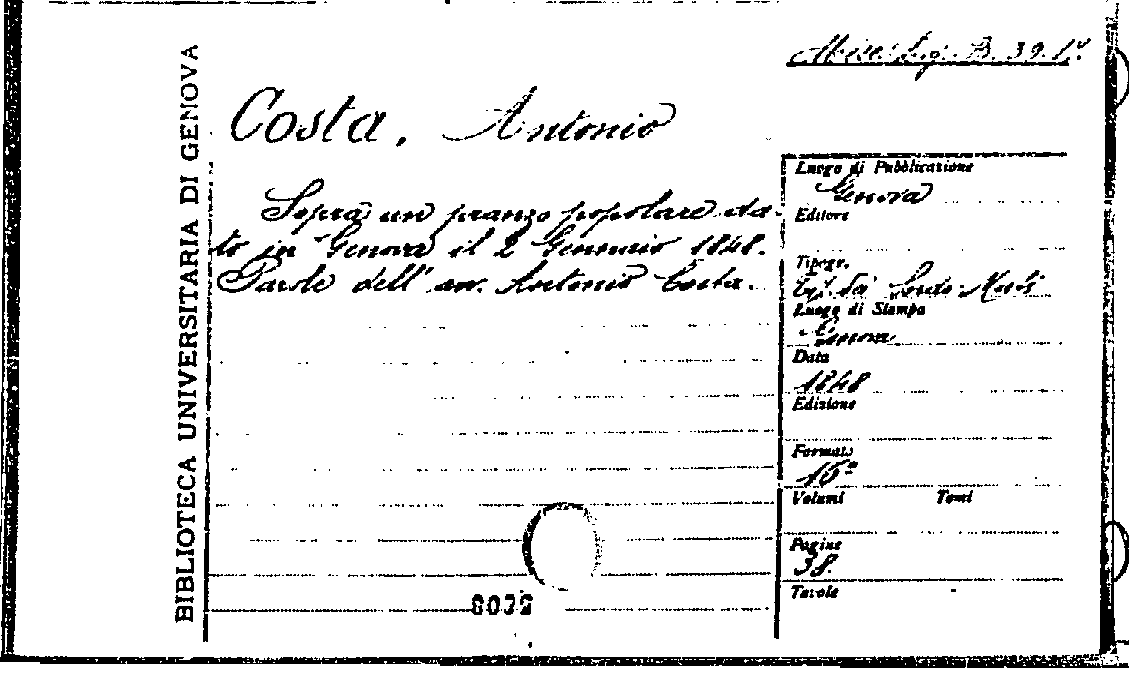 Misc. Lig. B. 39. 1º
BIBLIOTECA UNIVERSITARIA DI GENOVA
Costa, Antonio
Sopra un pranzo popolare da-
to in Genova il 2 Gennaio 1848.
Parole dell' av. Antonio Costa.
Luogo di Pubblicazione
Genova
Editore
Tipogr.
Tip. Sordo-Muti
Luogo di Stampa
Genova
Data
1848
Edizione
Formato
16º
Volumi Tomi
Pagine
38.
Tavole